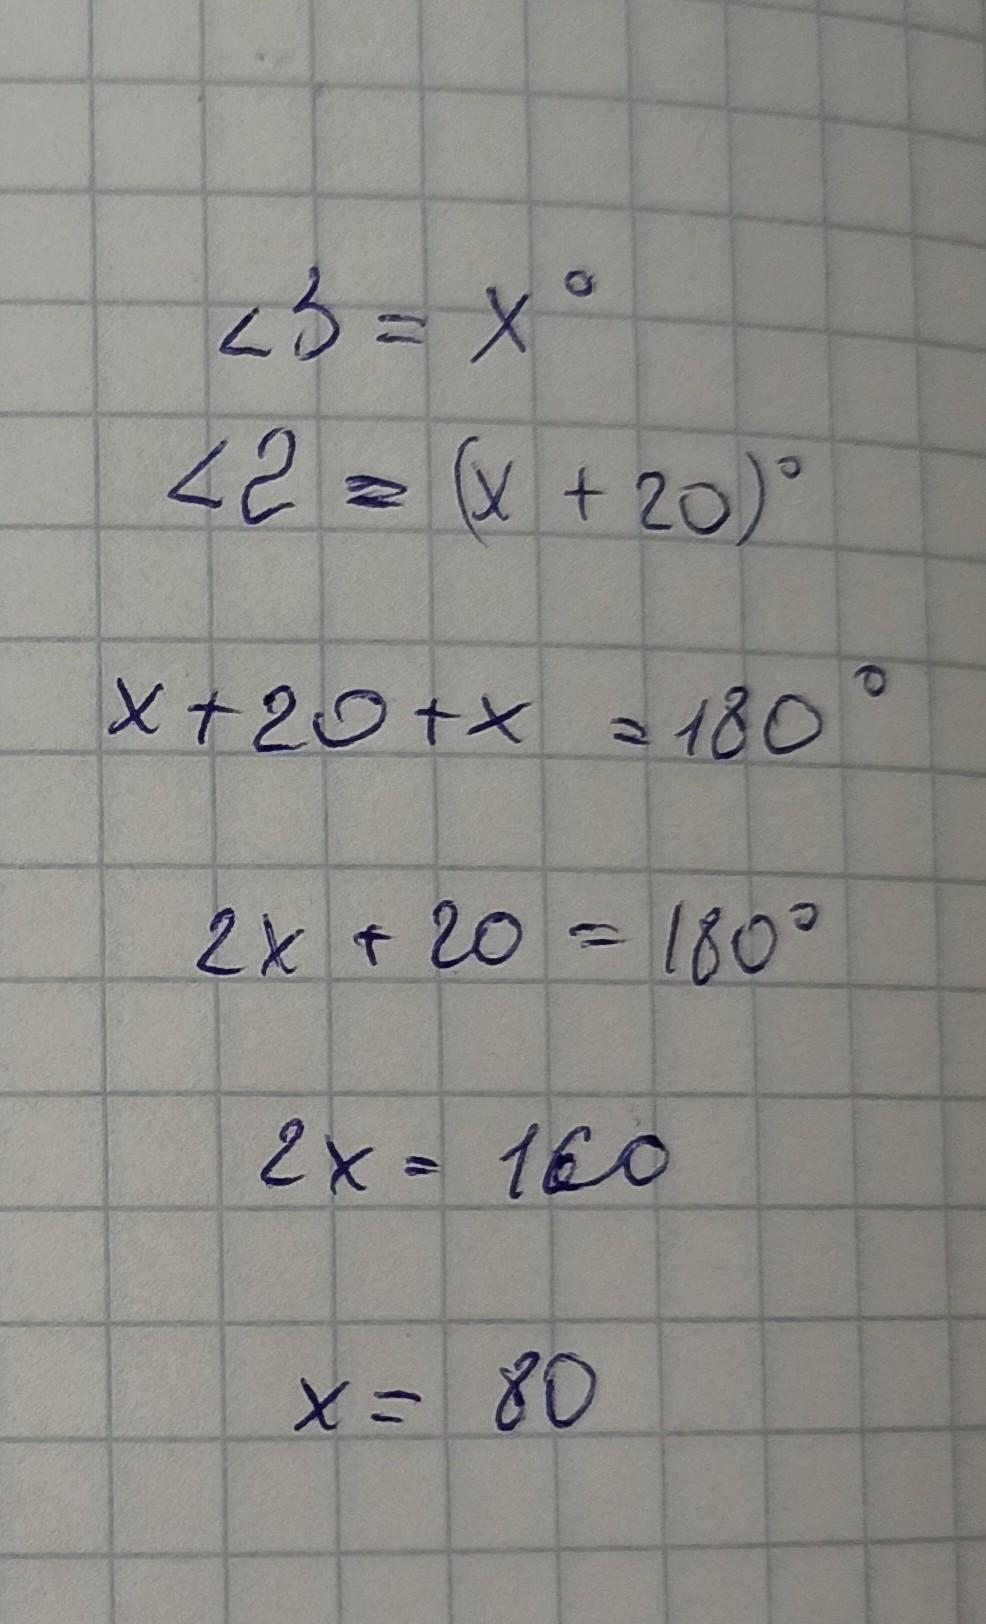 ∠3 = x°
∠2 = (x + 20)°
x + 20 + x = 180°
2x + 20 = 180°
2x = 160
x = 80